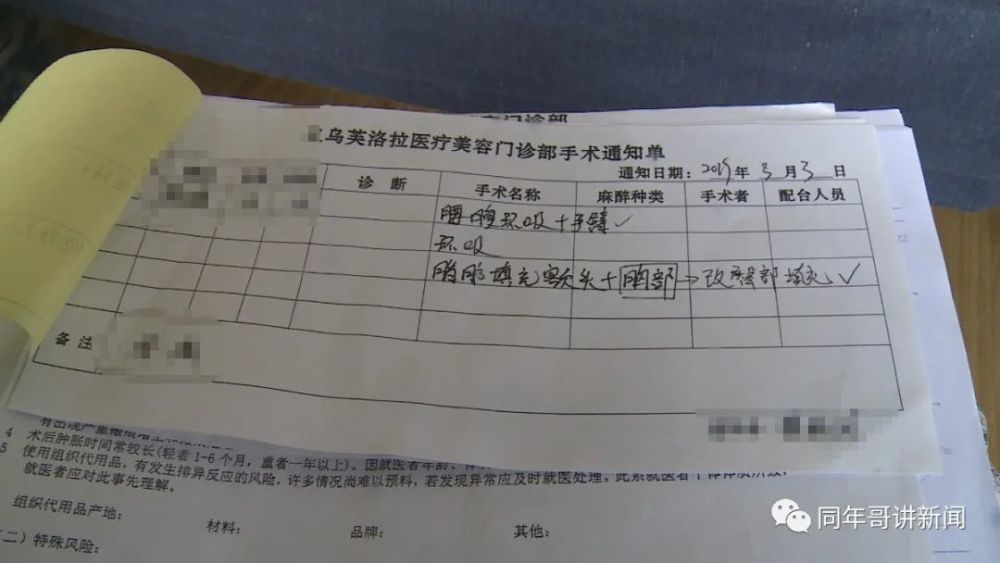 门诊部
乌芙洛拉医疗美容门诊部手术通知单
通知日期：2019年3月3日
诊断 手术名称 麻醉种类 手术者 配台人员
腰腹环吸+手臂✓
环吸
脂肪填充额头+胸部→改臀部填充✓
备注
4
术后肿胀时间常较长(轻者1-6个月，重者一年以上)。因就医者年龄、
5 使用组织代用品，有发生排异反应的风险，许多情况尚难以预料，若发现异常应及时就医处理。
就医者应对此事先理解。
组织代用品产地： 材料： 品牌： 其他：
二）特殊风险：
同年哥讲新闻